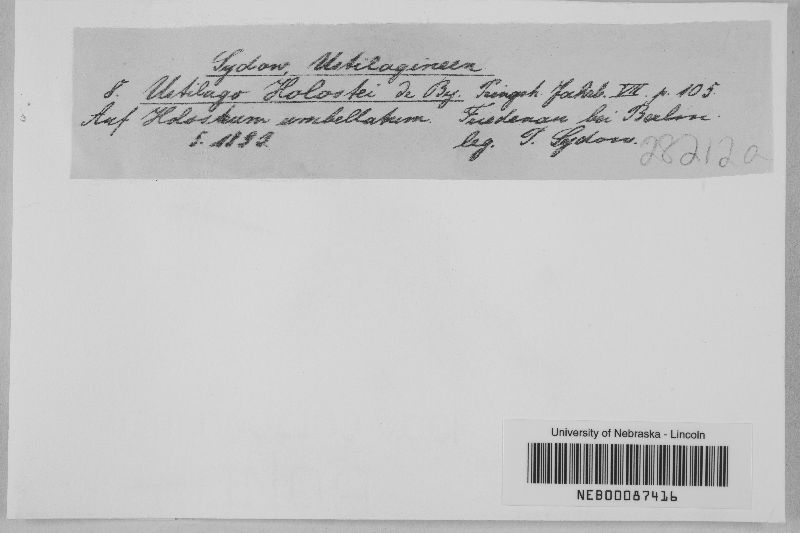 Sydow, Ustilagineen
8. Ustilago Holostei de By. Pringsh. Jahrb. VII. p. 105.
Auf Holosteum umbellatum. Friedenau bei Berlin.
5. 1893. leg. P. Sydow. 28212a
University of Nebraska - Lincoln
NEB00087416